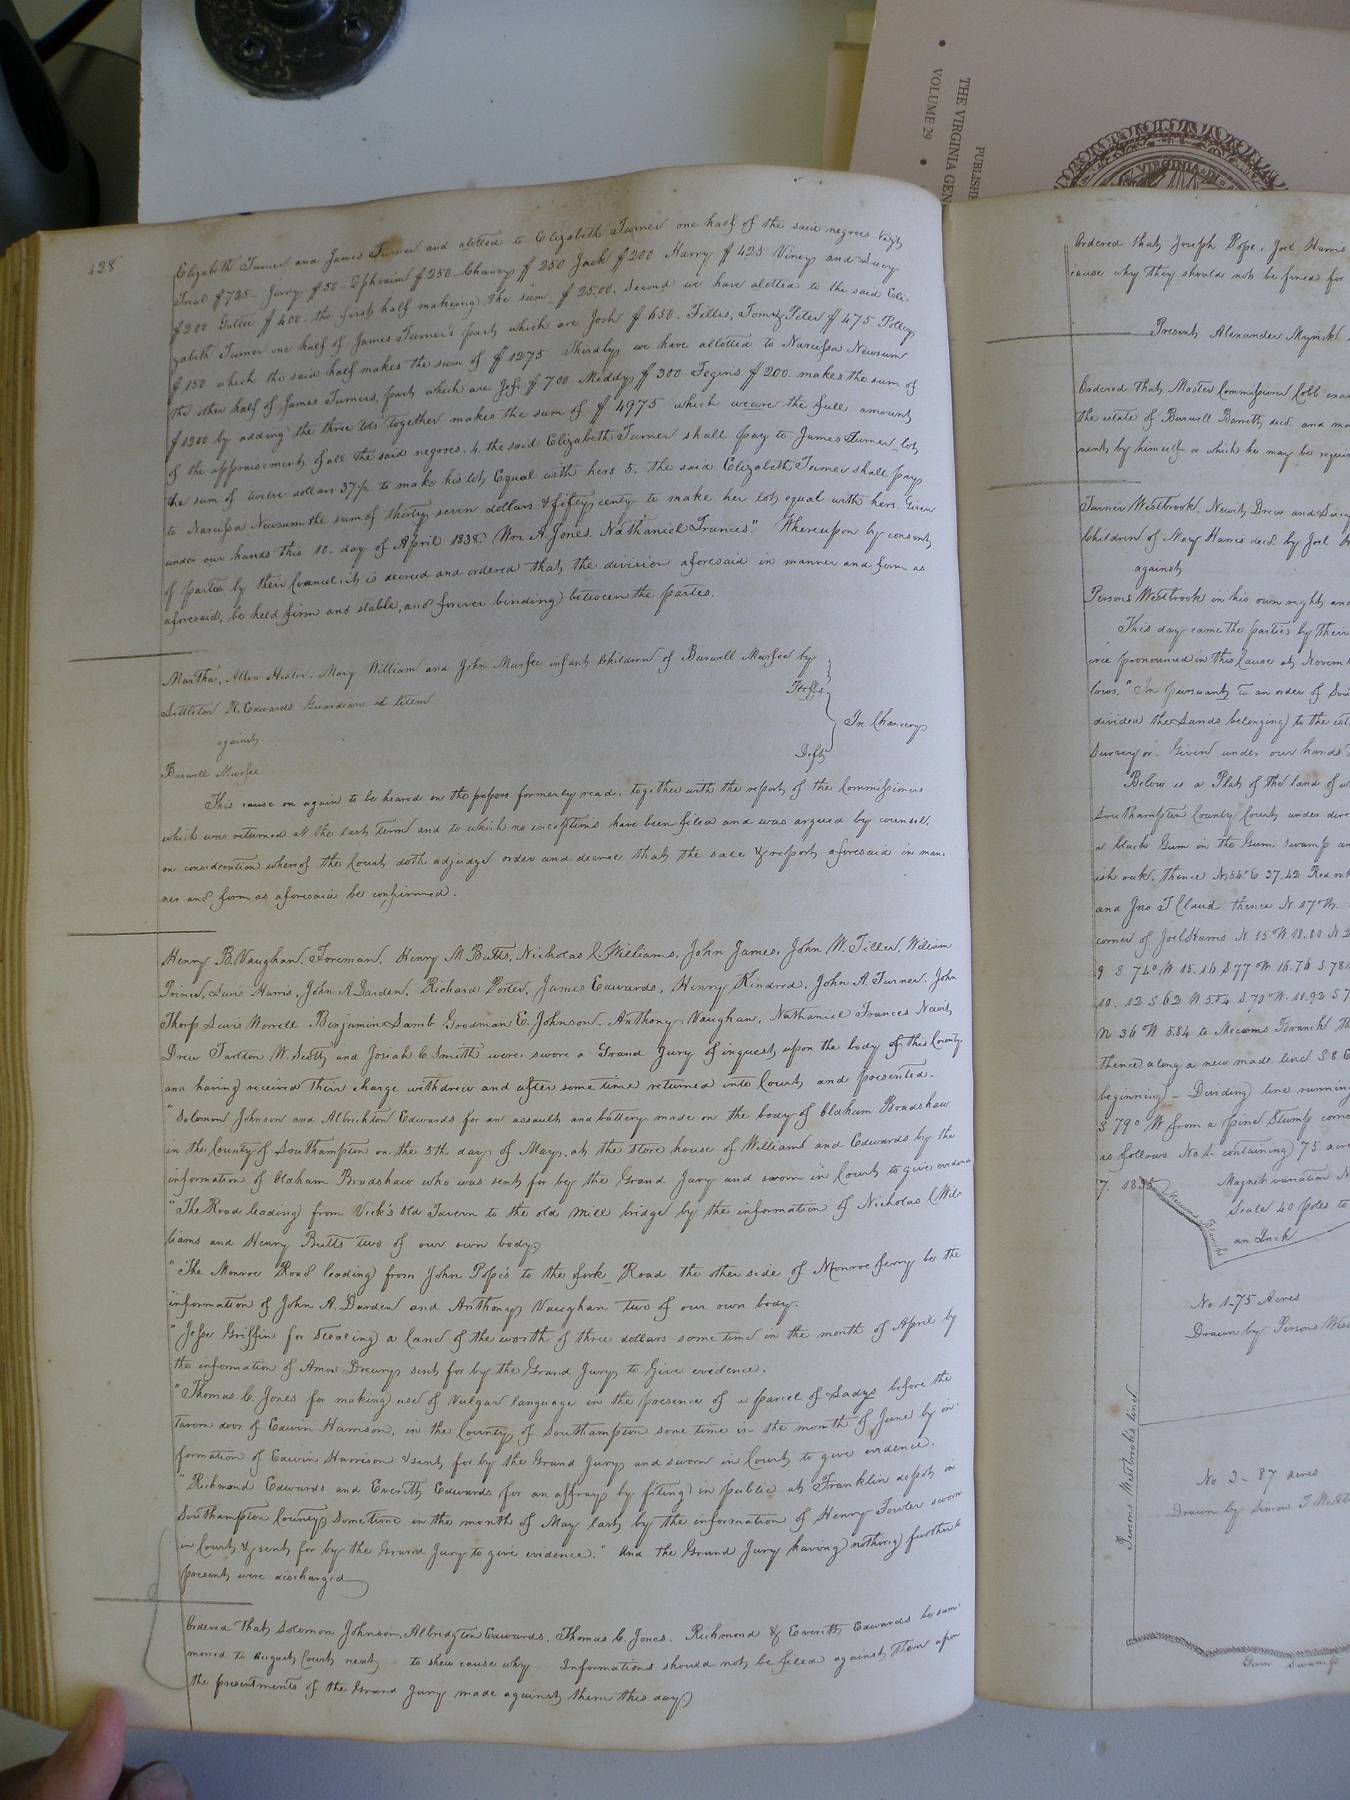 THE VIRGINIA GEN
VOLUME 29
PUBLISHE
VIRGINIA
428
Elizabeth Turner and James Turner and alotted to Elizabeth Turner one half of the said negroes Vizt
Trial $725 Jerry $50 Ephraim $250 Chancy $250 Jack $200 Harry $425 Viney and Lucy
$200 $400. the first half makeing the sum $2500. Second we have alotted to the said Eli-
zabeth Turner one half of James Turner's part which are Josh $650. Fillis, Tom & Peter $475 Polley
$150 which the said half makes the sum of $1275 Thirdly we have allotted to Narcissa Newsum
the other half of James Turners, part which are Jef $700 Meddy $300 $200. makes the sum of
$1200 by adding the three lots together makes the sum of $4975 which weare the full amount
of the appraisement of all the said negroes. 4. the said Elizabeth Turner shall pay to James Turner lot
the sum of twelve dollars 37½ to make his lot Equal with hers 5. the said Elizabeth Turner shall pay
to Narcissa Newsum the sum of thirty seven dollars & fifty centy to make her lot equal with hers. Given
under our hands this 10. day of April 1838. Wm A. Jones. Nathaniel Frances." Whereupon by consent
of parties by their Councel, it is decreed and ordered that the division aforesaid in manner and form as
aforesaid, be held firm and stable, and forever binding between the parties.
Martha, Allen Hester. Mary William and John Murfee infant Children of Burwell Murfee by
Littleton R. Edwards Guardian ad litem
Pltffs
against
In Chancery
Burwell Murfee
Deft
This cause on again to be heared on the papers formerly read, together with the report of the Commissioners
which was returned at the last term and to which no exceptions have been filed and was argued by counsel.
on consideration whereof the Court doth adjudge order and decree that the sale & report aforesaid in man-
ner and form as aforesaid be confirmed.
Henry B. Vaughan, Foreman, Henry M Butts, Nicholas L. Williams, John James, John W. Tiller, William
Prince, Lewis Harris, John A Darden, Richard Porter, James Edwards, Henry Kindred, John A. Turner. John
Thorp Lewis Worrell Benjamin Lamb Goodman E. Johnson, Anthony Vaughan, Nathaniel Frances Newit
Drew Tarlton W. Scott and Josiah C. Smith were swore a Grand Jury of inquest upon the body of this County
and having received their charge withdrew and after some time returned into Court and presented.
"Solomon Johnson and Albrichton Edwards for an assault and battery made on the body of Claham Bradshaw
in the County of Southampton on the 5th day of May, at the store house of Williams and Edwards by the
information of Claham Bradshaw who was sent for by the Grand Jury and sworn in Court to give evidence
"The Road leading from Vick's Old Tavern to the old Mill bridge by the information of Nicholas L Wil-
liams and Henry Butts two of our own body.
"The Monroe Road leading from John Pope's to the fork Road the other side of Monroe ferry be the
information of John A. Darden and Anthony Vaughan two of our own body.
"Jesse Griffin for Stealing a land of the worth of three dollars some time in the month of April by
the information of Amos Drewry sent for by the Grand Jury to Give evidence.
"Thomas C. Jones for making use of Vulgar language in the presence of a parcel of Ladys before the
tavern door of Edwin Harrison, in the County of Southampton some time in the month of June by in-
formation of Edwin Harrison & sent for by the Grand Jury and sworn in Court to give evidence.
"Richmond Edwards and Everitt Edwards for an affray by fiting in public at Franklin depot in
Southampton County Sometime in the month of May last by the information of Henry Fowler sworn
in Court & sent for by the Grand Jury to give evidence." And the Grand Jury having nothing further to
present were discharged
Ordered that Solomon Johnson, Albridgton Edwards, Thomas C. Jones. Richmond & Everitt Edwards be sum-
moned to August Court next to shew cause why Informations should not be filed against them upon
the presentments of the Grand Jury made against them this day
Ordered that Joseph Pope, Joel Harris
cause why they should not be fined for
Present Alexander Myrick
Ordered that Master Commissioner Cobb exa
the estate of Burwell Barrett, decd. and ma
ment by himself or which he may be requir
Turner Westbrook, Newit Drew and Lucy
Children of Mary Harris decd. by Joel
against
Persons Westbrook in his own right and
This day came the parties by their
cree pronounced in this Cause at Novem
lows, "In pursuant to an order of Sou
divided the Lands belonging to the est
Surveyor. Given under our hands
Below is a Plat of the land of
Southampton County Court under dire
a black Gum in the Gum swamp an
ish oak, thence N 54° E 37.42 Red oak
and Jno T Claud thence N 17 W.
corner of Joel Harris N 15 W 18.80 N
9 S 74° W 15.16 S 77° W 16.76 S 78
10. 12 S 62 W 5.54 S 70° W. 11.92 S 7
N 36 W 5.84 to Mecums Branch Th
thence along a new made line S 8 E
beginning - Dividing line running
S 79° W from a pine Stump corne
as follows No 1. containing 75 acre
7. 1835
Magnet variation N
Scale 40 poles to
an Inch
Mecums Branch
No 1-75 Acres
Drawn by Persons West
Persons Westbrook's line
No 3 - 87 acres
Drawn by Simon T. Westb
Gum Swamp